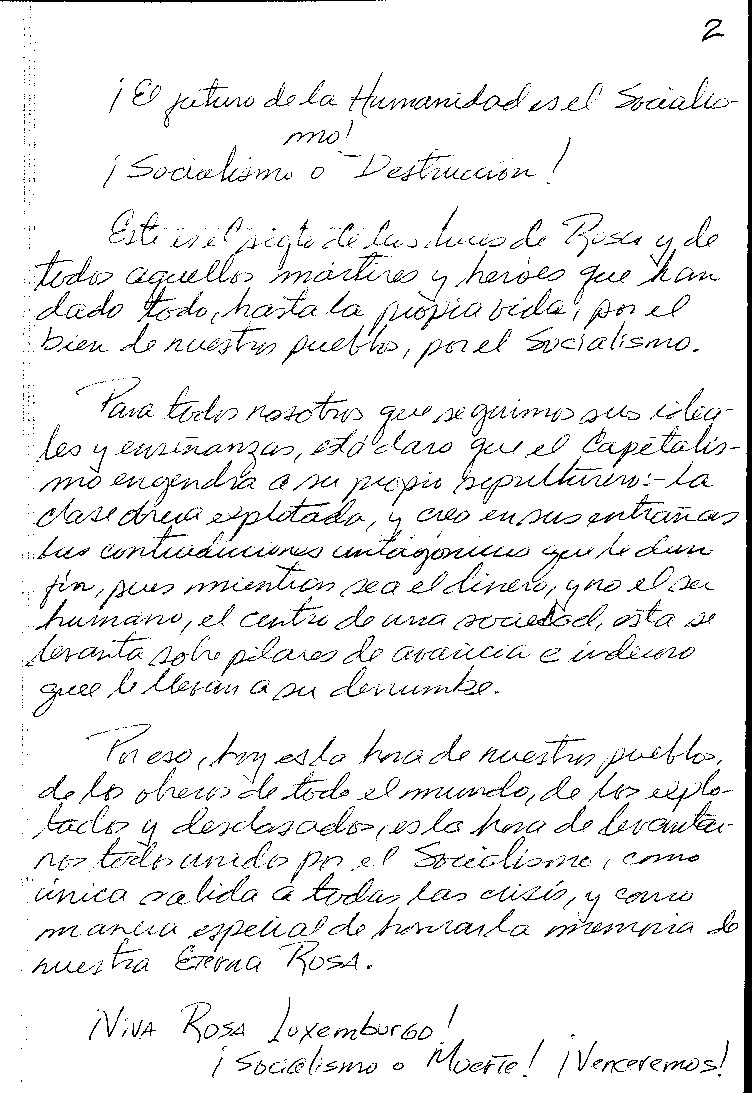 2
¡El futuro de la Humanidad es el Socialis-
mo!
¡Socialismo o Destrucción!
Este es el siglo de las luces de Rosa y de
todos aquellos mártires y heróes que han
dado todo, hasta la propia vida, por el
bien de nuestros pueblos, por el Socialismo.
Para todos nosotros que seguimos sus idea-
les y enseñanzas, está claro que el Capitalis-
mo engendra a su propio sepulturero:- la
clase obrera explotada, y creo en sus entrañas
las contradicciones antagónicas que le dan
fin, pues mientras sea el dinero, y no el ser
humano, el centro de una sociedad, esta se
levanta sobre pilares de avaricia e indecoro
que le llevan a su derrumbe.
Por eso, hoy es la hora de nuestros pueblos,
de los obreros de todo el mundo, de los explo-
tados y desclasados, es la hora de levantar-
nos todos unidos por el Socialismo, como
única salida a todas las crisis, y como
manera especial de honrar la memoria de
nuestra Eterna ROSA.
¡VIVA ROSA LUXEMBURGO!
¡Socialismo o Muerte! ¡Venceremos!